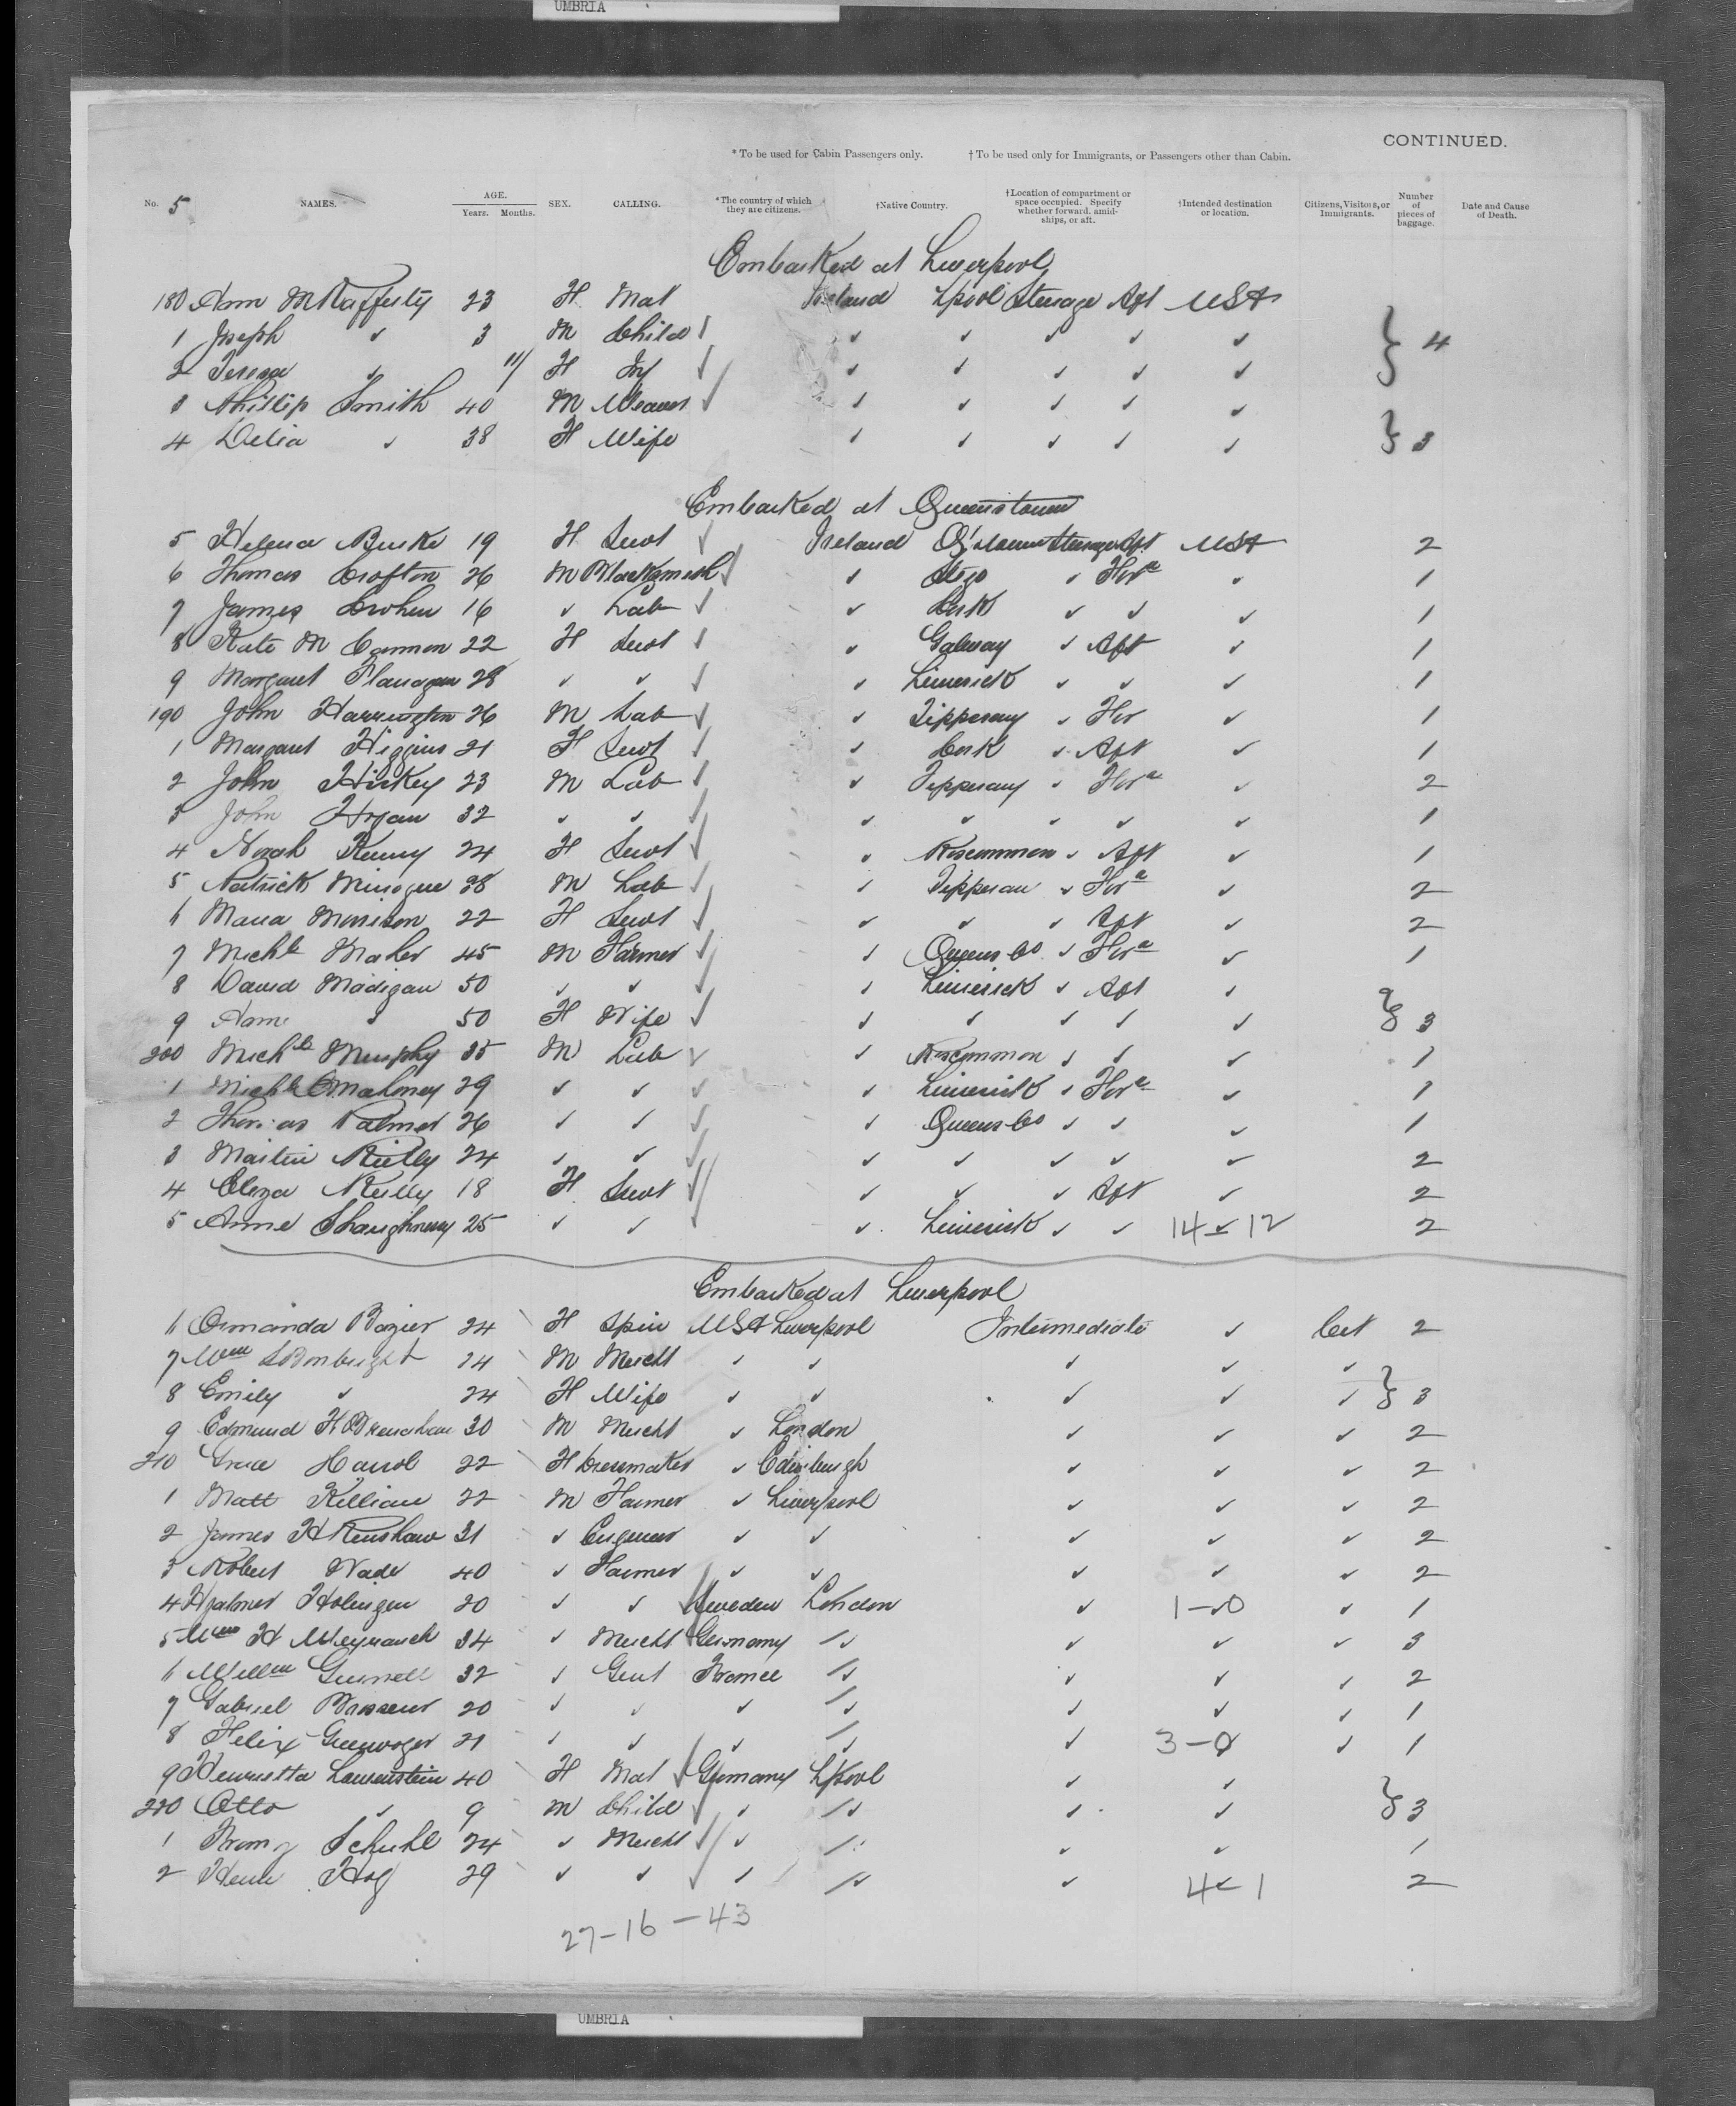 UMBRIA
CONTINUED.
* To be used for Cabin Passengers only. † To be used only for Immigrants, or Passengers other than Cabin.
No. 5 NAMES. AGE. Years. Months. SEX. CALLING. *The country of which they are citizens. †Native Country. †Location of compartment or space occupied. Specify whether forward, amidships, or aft. †Intended destination or location. Citizens, Visitors, or Immigrants. Number of pieces of baggage. Date and Cause of Death.
Embarked at Liverpool
180 Ann McRafferty 23 F Mat Ireland Lpool Steerage Aft USA
1 Joseph ✓ 3 M Child ✓ ✓ ✓ ✓ ✓ ✓ } 4
2 Teresa ✓ 11/ F Inf ✓ ✓ ✓ ✓ ✓ ✓
3 Phillip Smith 40 M Weaver ✓ ✓ ✓ ✓ ✓ ✓
4 Delia ✓ 38 F Wife ✓ ✓ ✓ ✓ ✓ } 3
Embarked at Queenstown
5 Helena Burke 19 F Servt ✓ Ireland Q'stown Steerage Aft USA 2
6 Thomas Crofton 26 M Blacksmith ✓ ✓ Sligo ✓ Ford ✓ 1
7 James Crohen 16 ✓ Lab ✓ ✓ Cork ✓ ✓ ✓ 1
8 Kate Mc Cannon 22 F Servt ✓ ✓ Galway ✓ Aft ✓ 1
9 Margaret Flanagan 28 ✓ ✓ ✓ ✓ Limerick ✓ ✓ ✓ 1
190 John Harrington 26 M Lab ✓ ✓ Tipperary ✓ For ✓ 1
1 Margaret Higgins 21 F Servt ✓ ✓ Cork ✓ Aft ✓ 1
2 John Hickey 23 M Lab ✓ ✓ Tipperary ✓ Ford ✓ 2
3 John Hogan 32 ✓ ✓ ✓ ✓ ✓ ✓ ✓ ✓ 1
4 Norah Kenny 24 F Servt ✓ ✓ Roscommon ✓ Aft ✓ 1
5 Patrick Minogue 28 M Lab ✓ ✓ Tipperary ✓ Ford ✓ 2
6 Maria Morrison 22 F Servt ✓ ✓ ✓ ✓ Aft ✓ 2
7 Michl Maher 45 M Farmer ✓ ✓ Queens Co ✓ Ford ✓ 1
8 David Madigan 50 ✓ ✓ ✓ ✓ Limerick ✓ Aft ✓
9 Anne ✓ 50 F Wife ✓ ✓ ✓ ✓ ✓ ✓ } 3
200 Michl Murphy 35 M Lab ✓ ✓ Roscommon ✓ ✓ ✓ 1
1 Michl OMahoney 29 ✓ ✓ ✓ ✓ Limerick ✓ Ford ✓ 1
2 Thomas Palmer 26 ✓ ✓ ✓ ✓ Queens Co ✓ ✓ ✓ 1
3 Martin Reilly 24 ✓ ✓ ✓ ✓ ✓ ✓ ✓ ✓ 2
4 Eliza Reilly 18 F Servt ✓ ✓ ✓ ✓ Aft ✓ 2
5 Anne Shaughnessy 25 ✓ ✓ ✓ ✓ Limerick ✓ ✓ 14 ✓ 12 2
Embarked at Liverpool
6 24 F Spin USA Liverpool Intermediate ✓ Cit 2
7 Wm 24 M Mercht ✓ ✓ ✓ ✓ ✓
8 Emily ✓ 24 F Wife ✓ ✓ ✓ ✓ ✓ } 3
9 Edmund 30 M Mercht ✓ London ✓ ✓ ✓ 2
210 Grace 22 F Dressmaker ✓ Edinburgh ✓ ✓ ✓ 2
1 Matt Killian 22 M Farmer ✓ Liverpool ✓ ✓ ✓ 2
2 James H Renshaw 31 ✓ Engineer ✓ ✓ ✓ ✓ ✓ 2
3 Robert Wade 40 ✓ Farmer ✓ ✓ ✓ ✓ ✓ 2
4 Hjalmer 20 ✓ ✓ Sweden London ✓ 1-0 ✓ 1
5 Wm H Weyrauch 34 ✓ Mercht Germany ✓ ✓ ✓ ✓ 3
6 Willm 32 ✓ Gent France ✓ ✓ ✓ ✓ 2
7 Gabriel 20 ✓ ✓ ✓ ✓ ✓ ✓ ✓ 1
8 Felix 21 ✓ ✓ ✓ ✓ ✓ 3-0 ✓ 1
9 Henrietta Lawenstein 40 F Mat ✓ Germany L'pool ✓ ✓
220 Otto ✓ 9 M Child ✓ ✓ ✓ ✓ ✓ } 3
1 Franz Schuhl 24 ✓ Mercht ✓ ✓ ✓ ✓ ✓ 1
2 29 ✓ ✓ ✓ ✓ ✓ ✓ 4 ✓ 1 2
27-16-43
UMBRIA